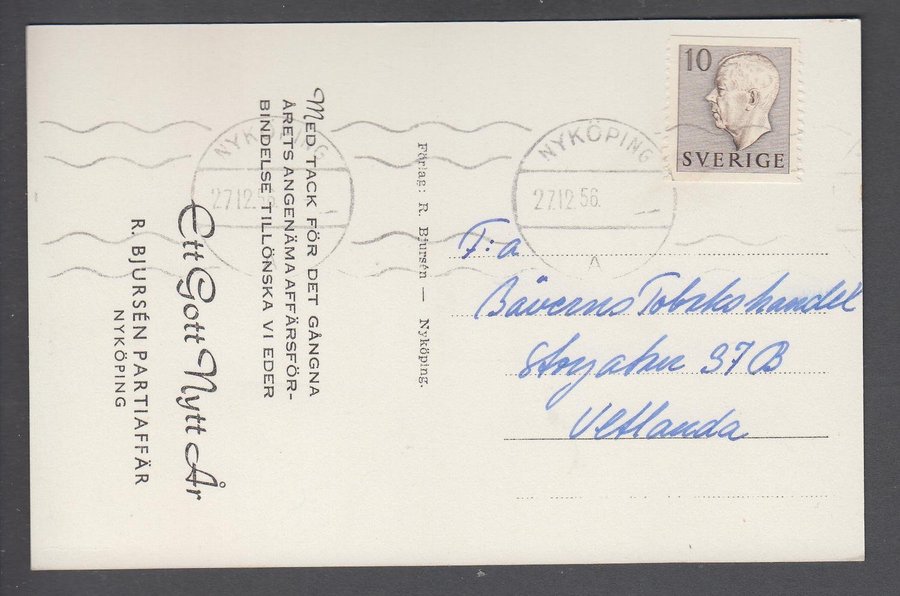 MED TACK FÖR DET GÅNGNA
ÅRETS ANGENÄMA AFFÄRSFÖR-
BINDELSE TILLÖNSKA VI EDER
Ett Gott Nytt År
R. BJURSÉN PARTIAFFÄR
NYKÖPING
Förlag: R. Bjursén — Nyköping.
NYKÖPING
27.12.56
NYKÖPING
27.12.56.
A
10
SVERIGE
F:a
Bäverns Tobakshandel
Storgatan 37 B
Vetlanda